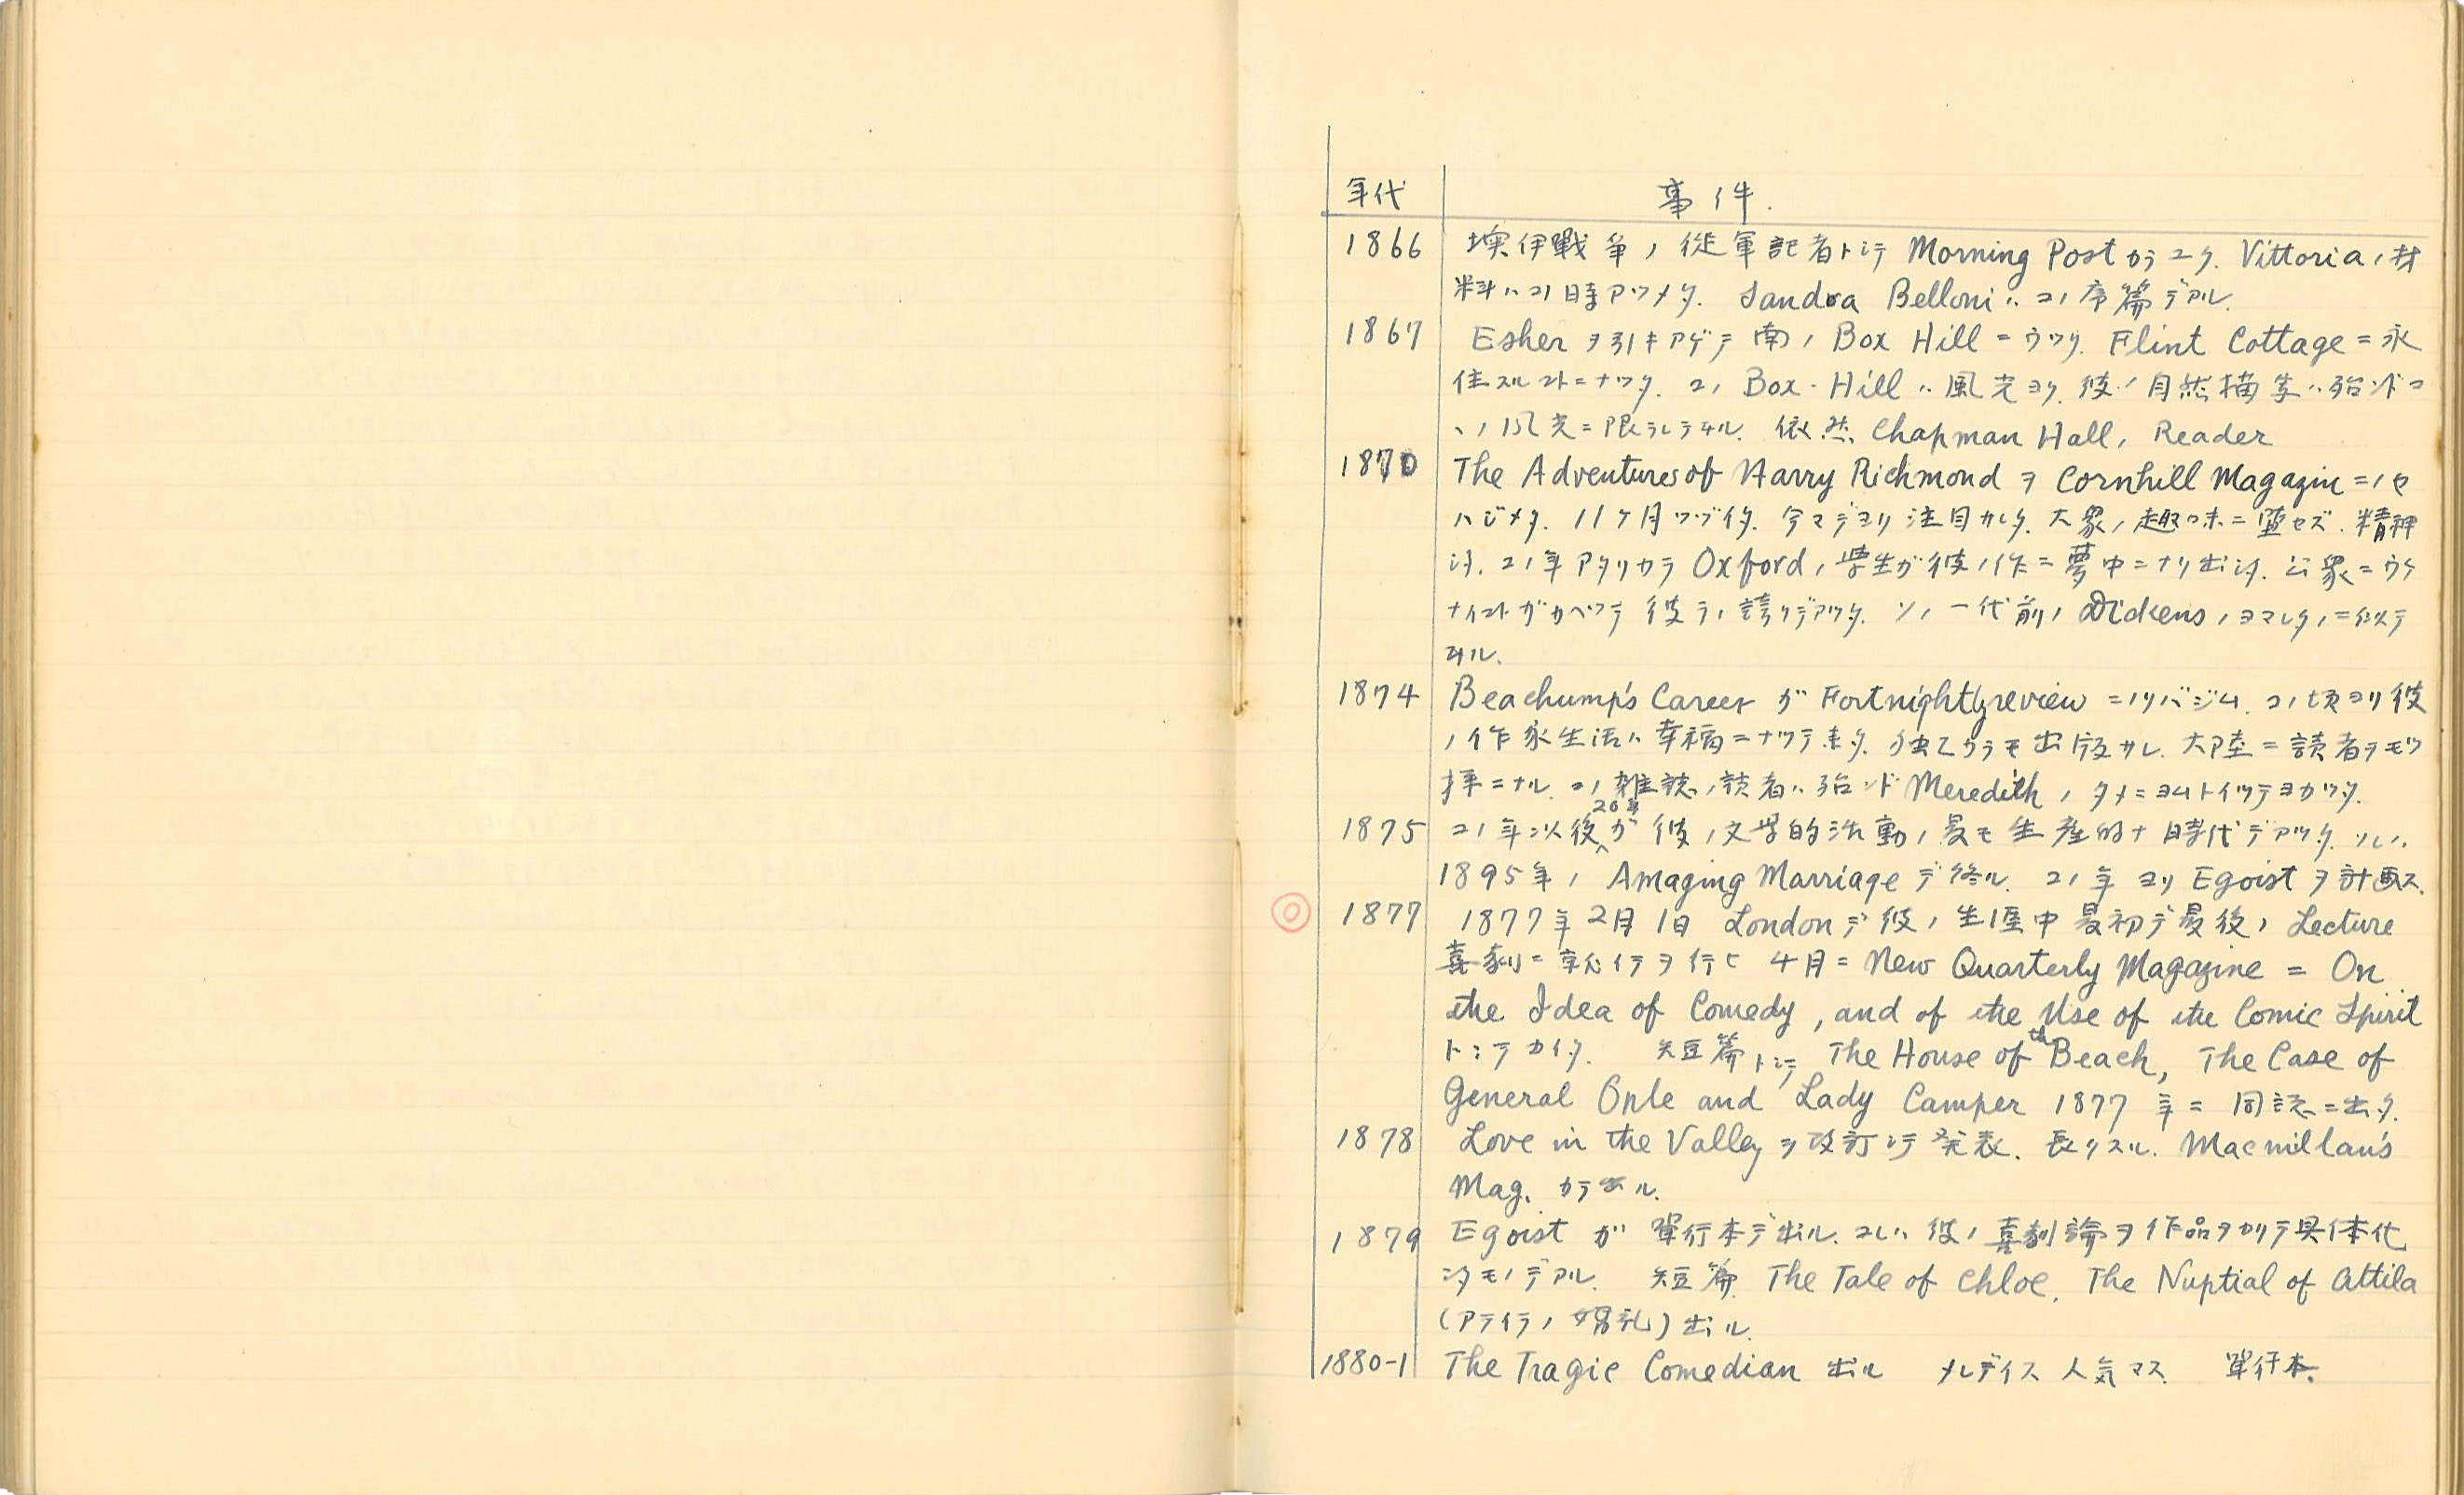 年代 事件.
1866 墺伊戰爭ノ從軍記者トシテ Morning Post カラユク. Vittoriaノ材
料ハコノ時アツメタ. Sandra Belloniハコノ序篇デアル.
1867 Esherヲ引キアゲテ南ノBox Hillニウツタ. Flint Cottageニ永
住スルコトニナツタ. コノBox-Hillハ風光ヨク. 彼ノ自然描写ハ殆ンドコ
ヽノ風光ニ限ラレテヰル. 依然 Chapman Hallノ Reader
1870 The Adventures of Harry Richmondヲ Cornhill Magazinニノセ
ハジメタ. 11ケ月ツヅイタ. 今マデヨリ注目サレタ. 大衆ノ趣味ニ堕セズ. 精神
シタ. コノ年アタリカラ Oxfordノ學生ガ彼ノ作ニ夢中ニナリ出シタ. 公衆ニウケ
ナイコトガカヘツテ彼ラノ誇リデアツタ. ソノ一代前ノDickensノヨマレタノニ似テ
ヰル.
1874 Beachump's Career ガ Fortnightlyreview ニノリハジム. コノ頃ヨリ彼
ノ作家生活ハ幸福ニナツテ来タ. 独乙カラモ出版サレ. 大陸ニ読者ヲモツ
様ニナル. コノ雑誌ノ読者ハ殆ンド Meredithノタメニヨムトイツテヨカツタ.
1875 コノ年以後20年ガ彼ノ文學的活動ノ最モ生産的ナ時代デアツタ. ソレハ
1895年ノ Amazing Marriageデ終ル. コノ年ヨリ Egoistヲ計画ス.
◎ 1877 1877年2月1日 Londonデ彼ノ生涯中最初デ最後ノ Lecture
喜劇ニ就イテヲ行ヒ 4月ニ New Quarterly Magazineニ On
the Idea of Comedy, and of the Use of the Comic Spirit
トシテカイタ. 短篇トシテ The House of th Beach, The Case of
General Onle and Lady Camper 1877年ニ同誌ニ出タ.
1878 Love in the Valleyヲ改訂シテ発表. 長クスル. Macmillan's
Mag. カラ出ル.
1879 Egoistガ單行本デ出ル. コレハ彼ノ喜劇論ヲ作品ヲカリテ具体化
シタモノデアル. 短篇. The Tale of Chloe, The Nuptial of Attila
(アテイラノ婚礼) 出ル.
1880-1 The Tragic Comedian 出ル メレデイス人気マス. 單行本.